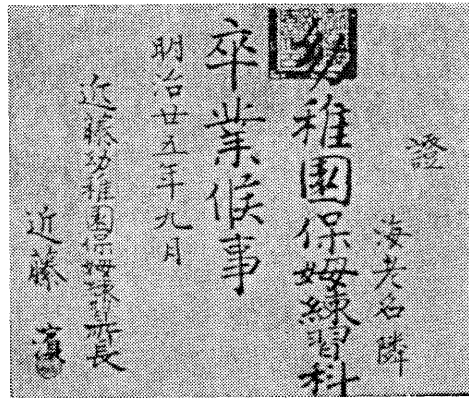 證
海老名隣
幼稚園保姆練習科
卒業候事
明治廿五年九月
近藤幼稚園保姆練習所長
近藤 濱